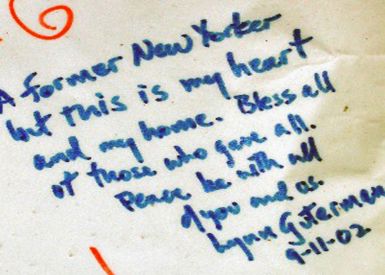 A Former New Yorker
but this is my heart
and my home. Bless all
of those who gave all.
Peace be with all
of you and us.
Lynn Guterman
9-11-02